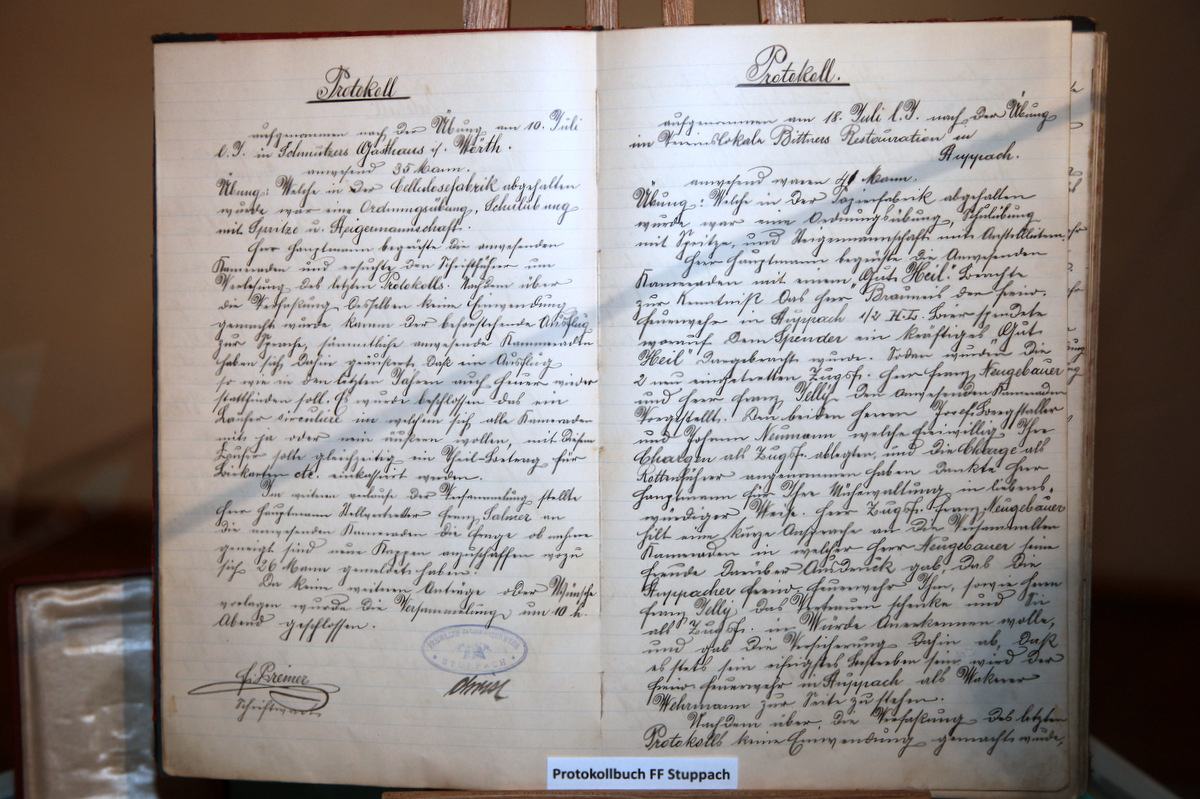 Protokoll
aufgenommen nach der Übung am 10. Juli
l. J. in Schmutzers Gasthaus i/. Werth.
anwesend 35 Mann.
Übung: Welche in der Cellulosefabrik abgehalten
wurde war eine Ordnungsübung, Schulübung
mit Spritze u. Steigermannschaft.
Herr Hauptmann begrüste die anwesenden
Kameraden und ersuchte den Schriftführer um
Verlesung des letzten Protokolls. Nachdem über
die Verfassung desselben keine Einwendung
gemacht wurde kamm der bevorstehende Ausflug
zur Sprache, sämmtliche anwesende Kammeraden
haben sich dahin geäußert, daß ein Ausflug
so wie in den letzten Jahren auch heuer wieder
stattfinden soll. Es wurde beschlossen das ein
Circulare im welchem sich alle Kameraden
mit ja oder nein äußern wollen, mit diesem
solte gleichzeitig ein Theil-Betrag für
etc. einkassirt werden.
Im weitern verlaufe der Versammlung stellte
Herr Hauptmann Stellvertretter Franz Salmer an
die anwesenden Kameraden die Frage ob
geneigt sind neue Kappen anzuschaffen wozu
sich 26 Mann gemeldet haben.
Da keine weitern Anträge oder Wünsche
vorlagen wurde die Versammlung um 10 h.
Abend geschlossen.
STUPPACH
Schriftwart
Protokoll.
aufgenommen am 18. Juli l. J. nach der Übung
im Vereinslokale Bittners Restauration in
Stuppach.
anwesend waren 41 Mann.
Übung: Welche in der Papierfabrik abgehalten
wurde war eine Ordnungsübung, Schulübung
mit Spritze, und Steigermannschaft mit
Herr Hauptmann begrüste die Anwesenden
Kameraden mit einem „Gut Heil". Brachte
zur Kenntniß das Herr der freiw.
Feuerwehr in Stuppach 1/2 H.L. Bier spendete
worauf dem Spender ein kräftiges „Gut
Heil" dargebracht wurde. Sodan wurden die
2 neu eingetretten Zugsf. Herr Franz Neugebauer
und Herr Franz Jelly den Anwesenden Kameraden
Vorgestellt. Den beiden Herren Josef
und Johann Neumann welche freiwillig Ihre
Chargen als Zugsf. ablegten, und die Charge als
Rottenführer angenommen haben dankte Herr
Hauptmann für Ihre Mühewaltung in liebens-
würdiger Weise. Herr Zugsf. Franz Neugebauer
hilt eine kurze Ansprache an die Versammelten
Kameraden in welcher Herr Neugebauer seine
Freude darüber Ausdruck gab, das die
Stuppacher freiw. Feuerwehr Ihm, sowie Herrn
Franz Jelly das Vertrauen schenke und Sie
als Zugsf. in Würde Anerkennen wolle,
und gab die Versicherung dahin ab, daß
es stets sein eifrigstes Bestreben sein wird der
freiw. Feuerwehr in Stuppach als Wakerer
Wehrmann zur Seite zu stehen.
Nachdem über die Verfassung des letzten
Protokolls keine Einwendung gemacht wurde,
Protokollbuch FF Stuppach